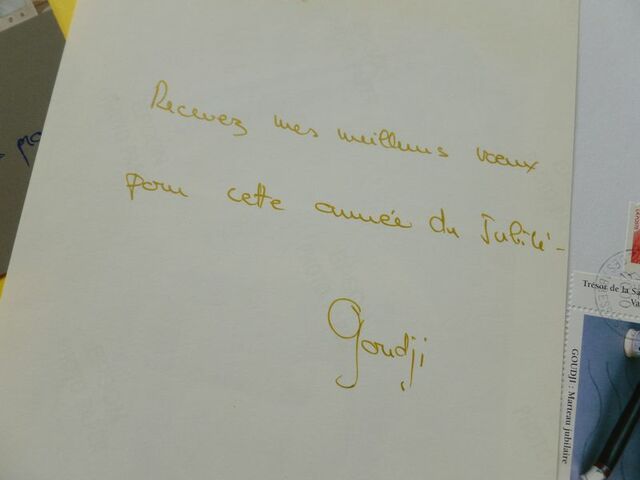 Recevez mes meilleurs vœux
pour cette année du Jubilé-
Goudji
Trésor de la Sa
Va
GOUDJI : Marteau jubilaire